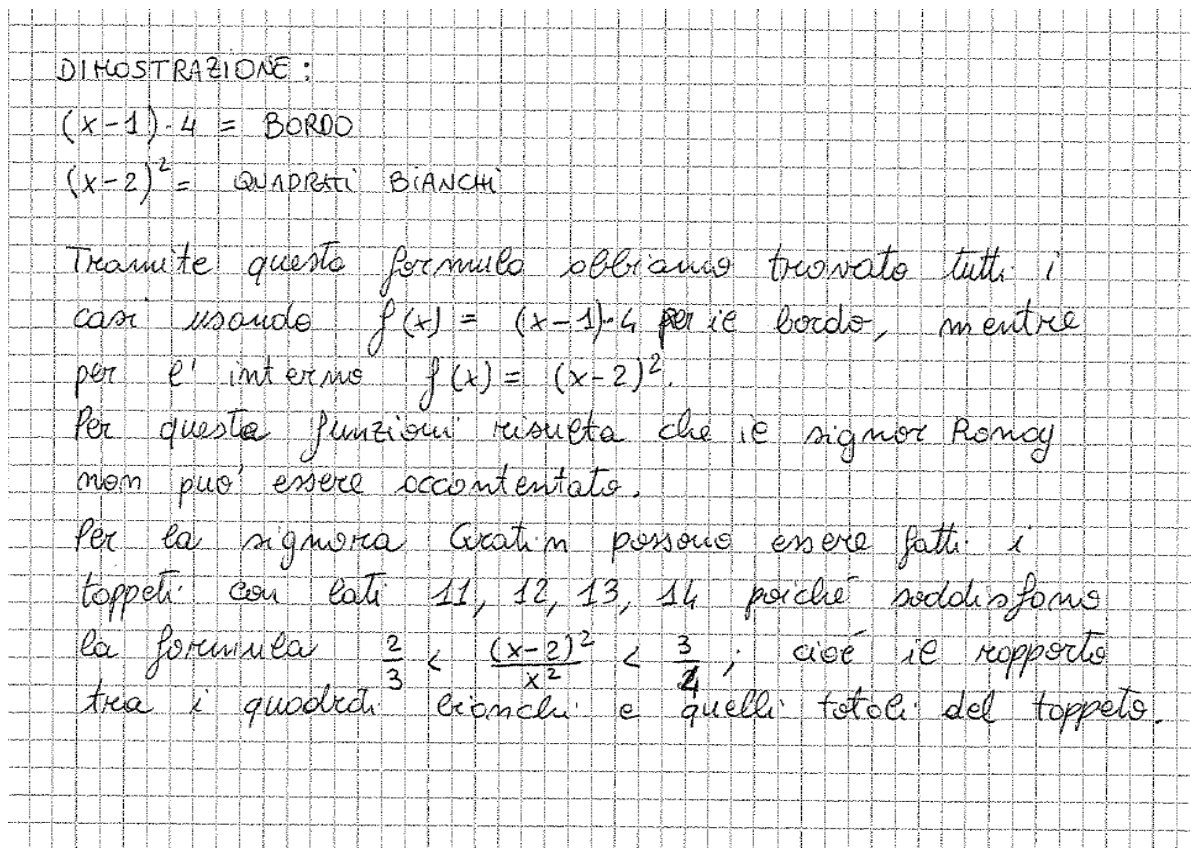 DIMOSTRAZIONE:
(x-1)·4 = BORDO
(x-2)² = QUADRATI BIANCHI
Tramite questa formula abbiamo trovato tutti i
casi usando f(x) = (x-1)·4 per il bordo, mentre
per l'interno f(x) = (x-2)².
Per questa funzioni risulta che il signor Rongy
non può essere accontentato.
Per la signora Gratin possono essere fatti i
tappeti con lati 11, 12, 13, 14 poiché soddisfano
la formula 2/3 < (x-2)²/x² < 3/4 ; cioè il rapporto
tra i quadrati bianchi e quelli totali del tappeto.